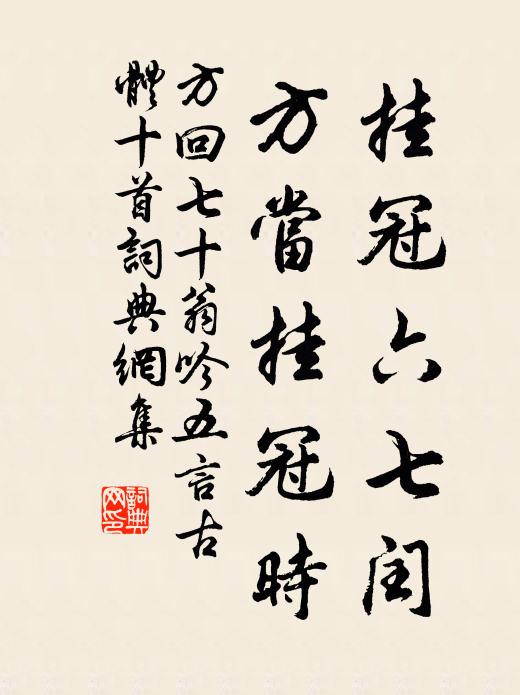 挂冠六七闰
方當挂冠時
方回七十翁吟五言古
體十首詞典網集
詞典網印